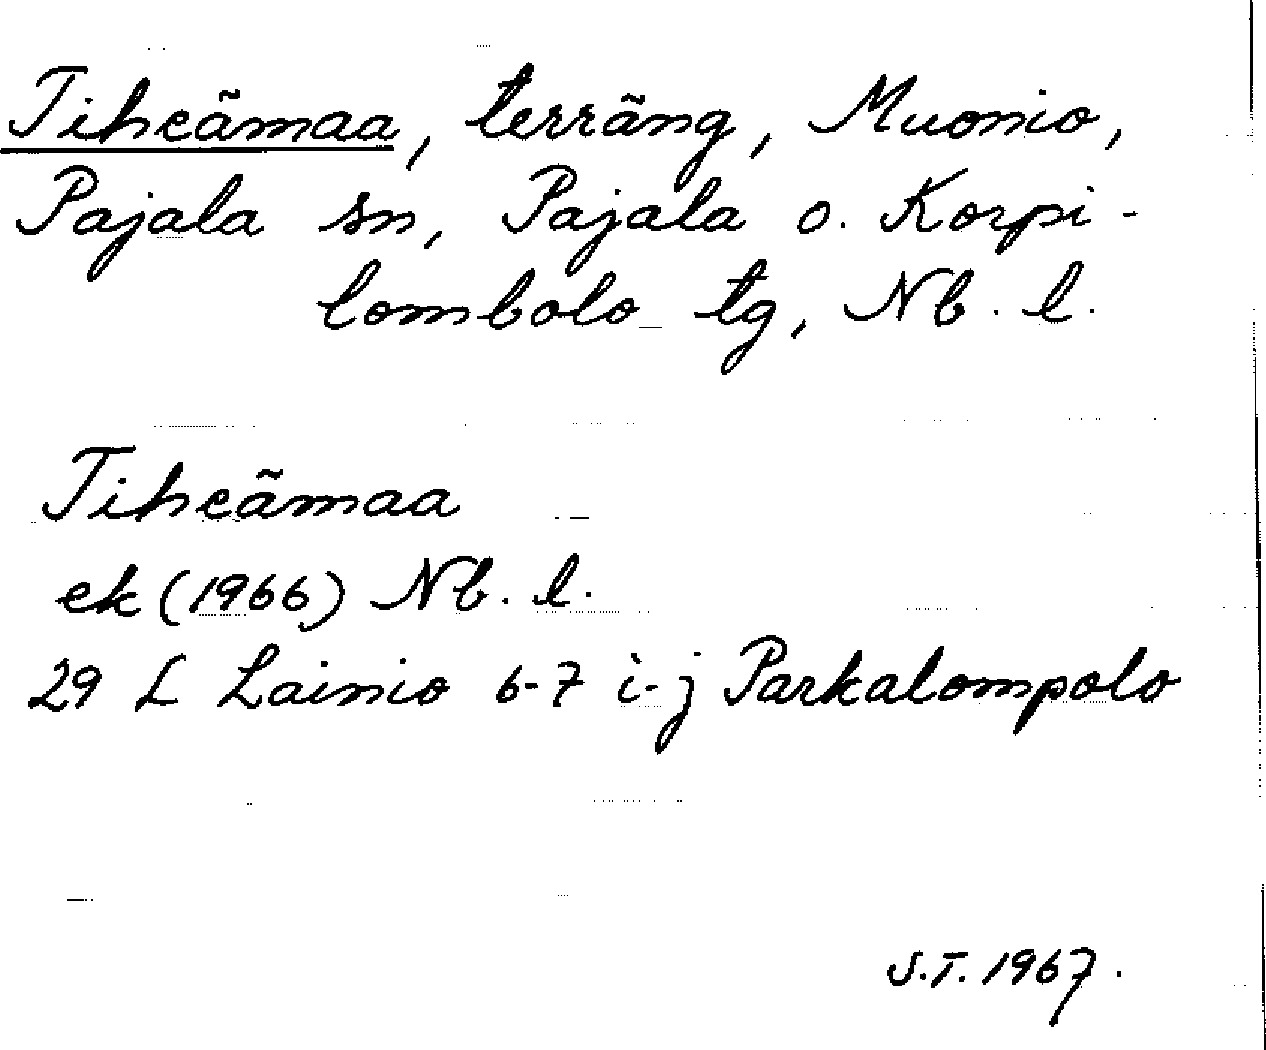 Tiheämaa, terräng, Muonio,
Pajala sn, Pajala o. Korpi-
lombolo tg, Nb. l.
Tiheämaa
ek (1966) Nb. l.
29 L Lainio 6-7 i-j Parkalompolo
S.T. 1967.